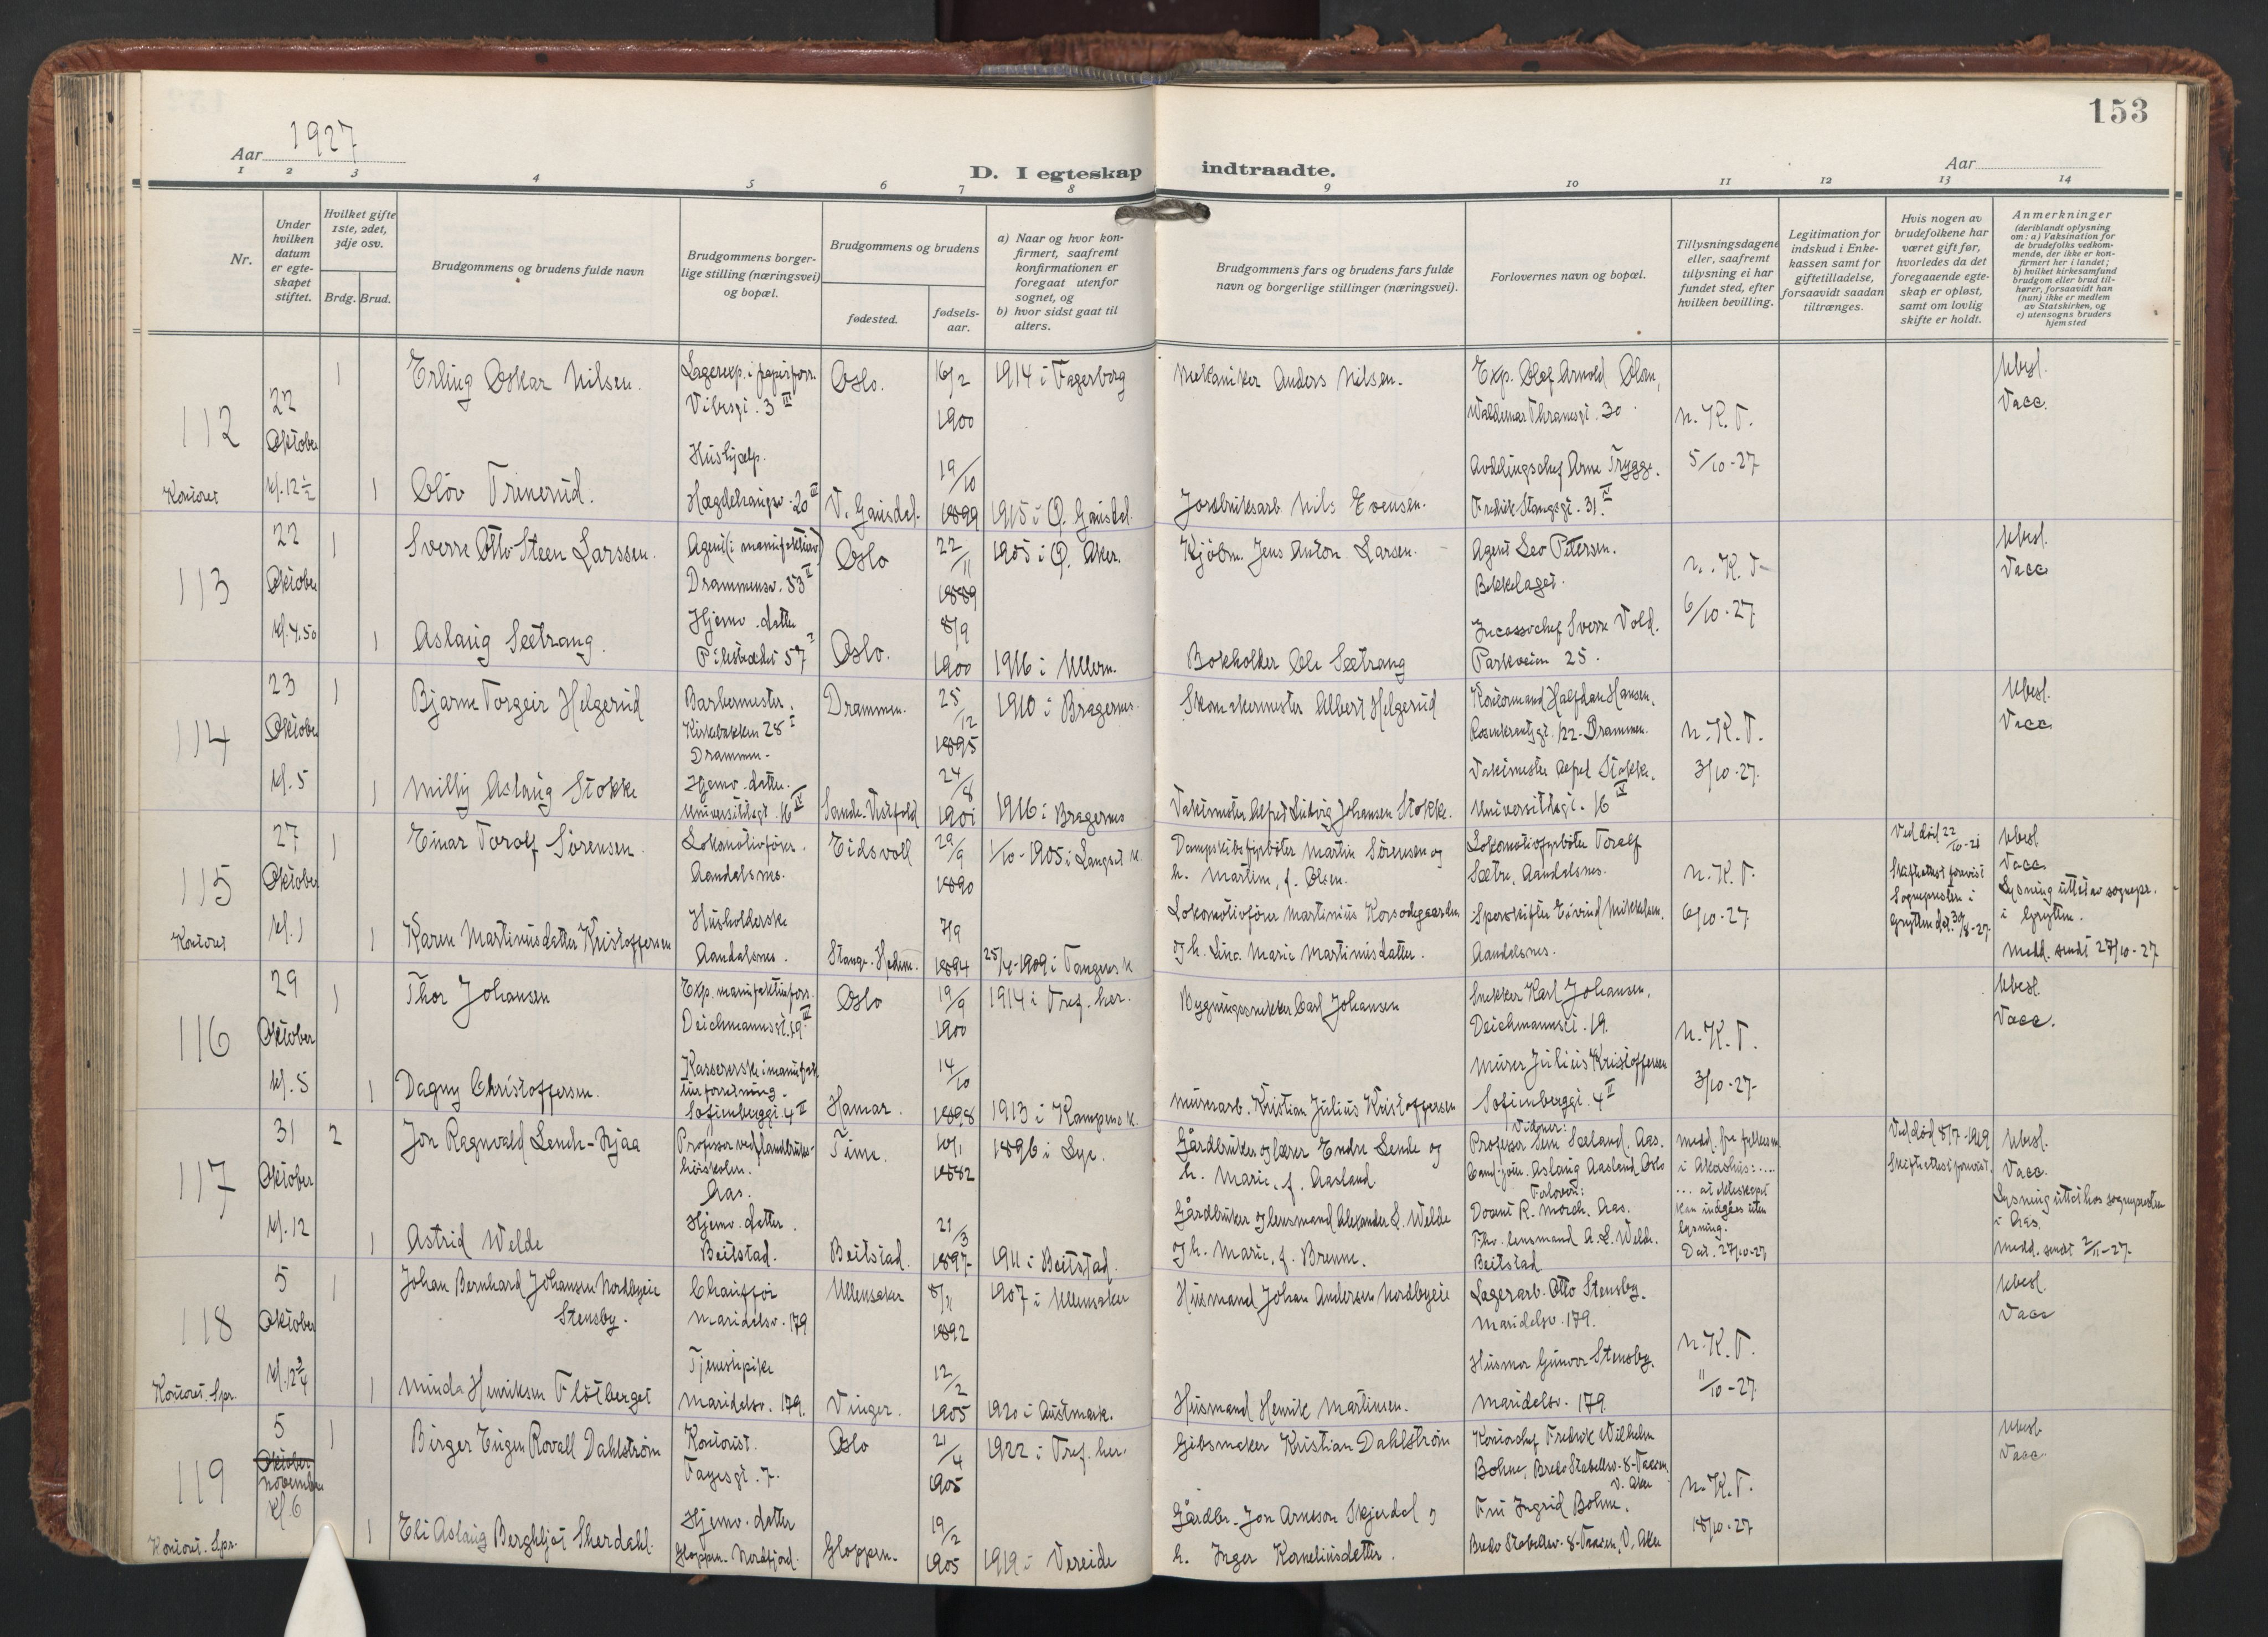 153
Aar 1927
Aar
D. I egteskap indtraadte.
1 2 3 4 5 6 7 8 9 10 11 12 13 14
Nr.
Under hvilken datum er egteskapet stiftet.
Hvilket gifte 1ste, 2det, 3dje osv.
Brdg. Brud.
Brudgommens og brudens fulde navn
Brudgommens borgerlige stilling (næringsvei) og bopæl.
Brudgommens og brudens
fødested.
fødselsaar.
a) Naar og hvor konfirmert, saafremt konfirmationen er foregaat utenfor sognet, og
b) hvor sidst gaat til alters.
Brudgommens fars og brudens fars fulde navn og borgerlige stillinger (næringsvei).
Forlovernes navn og bopæl.
Tillysningsdagene eller, saafremt tillysning ei har fundet sted, efter hvilken bevilling.
Legitimation for indskud i Enkekassen samt for giftetilladelse, forsaavidt saadan tiltrænges.
Hvis nogen av brudefolkene har været gift før, hvorledes da det foregaaende egteskap er opløst, samt om lovlig skifte er holdt.
Anmerkninger
(deriblandt oplysning om: a) Vaksination for de brudefolks vedkommende, der ikke er konfirmert her i landet;
b) hvilket kirkesamfund brudgom eller brud tilhører, forsaavidt han (hun) ikke er medlem av Statskirken, og
c) utensogns bruders hjemsted
112 Kontoret
22 Oktober kl. 12 1/2
1 Erling Oskar Nilsen.
Lagerexp. i papirforr.
Vibesgt. 3 III
Oslo.
16/2 1900
1914 i Fagerborg
Mekaniker Anders Nilsen.
Exp. Olof Arnold Olsen,
Waldemar Thranesgt. 30.
N. K. T.
5/10-27
Ubesl.
Vacc.
1 Olöv Trinerud.
Hushjælp.
Hægdehaugsv. 20 III
V. Gausdal.
19/10 1899
1915 i Ø. Gausdal.
Jordbruksarb Nils Evensen.
Avdelingschef Arne Trygg.
Fredrik Stangsgt. 31 IV
113
22 Oktober kl. 4.50
1 Sverre Otto Steen Larssen.
Agent (i manufaktur)
Drammensv. 53 II
Oslo
22/11 1889
1905 i Ø. Aker.
Kjöbm. Jens Anton Larsen.
Agent Leo Pettersen.
Bekkelaget.
N. K. T
6/10-27
Ubesl.
Vacc
1 Aslaug Sætrang.
Hjemv. datter
Pilestrædet 57 I
Oslo.
8/9 1900
1916 i Ullern.
Bokholder Ole Sætrang
Incassochef Sverre Vold.
Parkveien 25.
114
23 Oktober kl. 5
1 Bjarne Torgeir Helgerud
Barbermester.
Kirkebakken 28 I
Drammen
Drammen.
25/12 1895
1910 i Bragernes.
Skomakermester Albert Helgerud
Kontormand Halfdan Hansen.
Rosenkrantzgt. 122-Drammen.
N. K. T.
3/10-27.
Ubesl.
Vacc
1 Milly Aslaug Stokke
Hjemv. datter.
Universitetsgt. 16 IV
Sande-Vestfold
24/8 1901
1916 i Bragernes
Vaktmester Alfred Ludvig Johansen Stokke.
Vaktmester Alfred Stokke.
Universitetsgt. 16 IV
115 Kontoret
27 Oktober kl. 1
1 Einar Toralf Sörensen.
Lokomotivförer.
Aandalsnes.
Eidsvoll
29/9 1890
1/10-1905 i Langset k.
Dampskibsfyrböter Martin Sörensen og
h. Martine, f. Olsen.
Lokomotivfyrböter Toralf
Sætre, Aandalsnes.
N. K. T.
6/10-27
Ved död 22/10-21
Skifteattest forevist
Sognepresten i
Grytten dat. 30/8-27.
Ubesl
Vacc
Lysning uttat av sognepr.
i Grytten.
Medd. sendt 27/10-27
1 Karen Martinusdatter Kristoffersen
Husholderske
Aandalsnes.
Stange-Hedem.
7/9 1894
25/4-1909 i Tangens k
Lokomotivförer Martinius Korsodegaarden
og h. Lina Marie Martinusdatter.
Sporskifter Eivind Mikkelsen.
Aandalsnes.
116
29 Oktober kl. 5
1 Thor Johansen
Exp. manufakturforr.
Deichmannsgt. 19 III
Oslo
19/9 1900
1914 i Tref. her.
Bygningssnekker Carl Johansen
Snekker Karl Johansen,
Deichmannsgt. 19.
N. K. T.
3/10-27-
Ubesl.
Vacc.
1 Dagny Christoffersen.
Kassererske i manufaktur forretning.
Sofienberggt. 4 II
Hamar.
14/10 1898
1913 i Kampens k.
Murerarb. Kristian Julius Kristoffersen
Murer Julius Kristoffersen
Sofienberggt. 4 II
117
31 Oktober kl. 12
2 Jon Ragnvald Lende-Njaa
Professor ved Landbrukshöiskolen.
Aas.
Time.
10/1 1882
1896 i Lye.
Gårdbruker og lærer Endre Lende og
h. Marie, f. Aasland.
Vidner:
Professor Sem Sæland. Aas.
Cand. jur. Aslaug Aasland. Oslo
Medd. fra fylkesm.
i Akershus: .....
... at ekteskapet
kan indgåes uten
lysning.
Dat. 27/10-27
Ved död 8/7-1919
Skifteattest forevist.
Ubesl.
Vacc.
Lysning uttat hos sognepresten
i Aas.
Medd. sendt 2/11-27-
1 Astrid Welde
Hjemv. datter.
Beitstad.
Beitstad.
21/3 1897
1911 i Beitstad.
Gårdbruker og lensmand Alexander L. Welde
og h. Marie, f. Brenne.
Forlover:
Docent R. Mork. Aas.
Fhv. lensmand A. L. Welde.
Beitstad
118 Kontoret. Spr.
5 Oktober kl. 12 3/4
1 Johan Bernhard Johansen Nordbyeie
Stensby.
Chauffør
Maridalsv. 179
Ullensaker
8/11 1892
1907 i Ullensaker
Husmand Johan Andersen Nordbyeie
Lagerarb. Otto Stensby.
Maridalsv. 179.
N. K. T.
11/10-27
Ubesl.
Vacc
1 Minda Henriksen Flötberget
Tjenestepike
Maridalsv. 179.
Vinger.
12/2 1905
1920 i Austmark.
Husmand Henrik Martinsen.
Husmor Gunvor Stensby.
Maridalsv. 179.
119 Kontoret. Spr.
5 Oktober November kl. 6
1 Birger Eugen Rovall Dahlström
Kontorist.
Fayesgt. 7.
Oslo
21/4 1905
1922 i Tref. her.
Gibsmaker Kristian Dahlström
Kontorchef Fredrik Wilhelm
Bohne, Bredo Stabellsv. 8-Taasen
V. Aker
N. K. T.
18/10-27
Ubesl.
Vacc
1 Eli Aslaug Bergkljot Skerdahl.
Hjemv. datter
Gloppen-Nordfjord.
Gloppen.
19/2 1905
1919 i Vereide
Gårdbr. Jon Arneson Skjerdal og
h. Inger Korneliusdatter.
Fru Ingrid Bohne.
Bredo Stabellsv. 8-Taasen, V. Aker